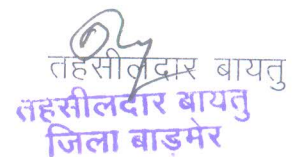 तहसीलदार बायतु
तहसीलदार बायतु
जिला बाड़मेर